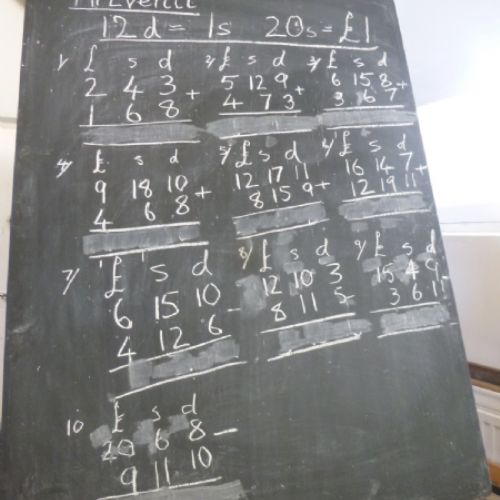 12d = 1s 20s = £1
1/ £ s d 2/ £ s d 3/ £ s d
2 4 3 5 12 9 6 15 8
1 6 8 + 4 7 3 + 3 6 7 +
4/ £ s d 5/ £ s d 6/ £ s d
9 18 10 12 17 11 16 14 7
4 6 8 + 8 15 9 + 12 19 11 +
7/ £ s d 8/ £ s d 9/ £ s d
6 15 10 12 10 3 15 4 9
4 12 6 - 8 11 5 - 3 6 11 -
10 £ s d
20 6 8 -
9 11 10